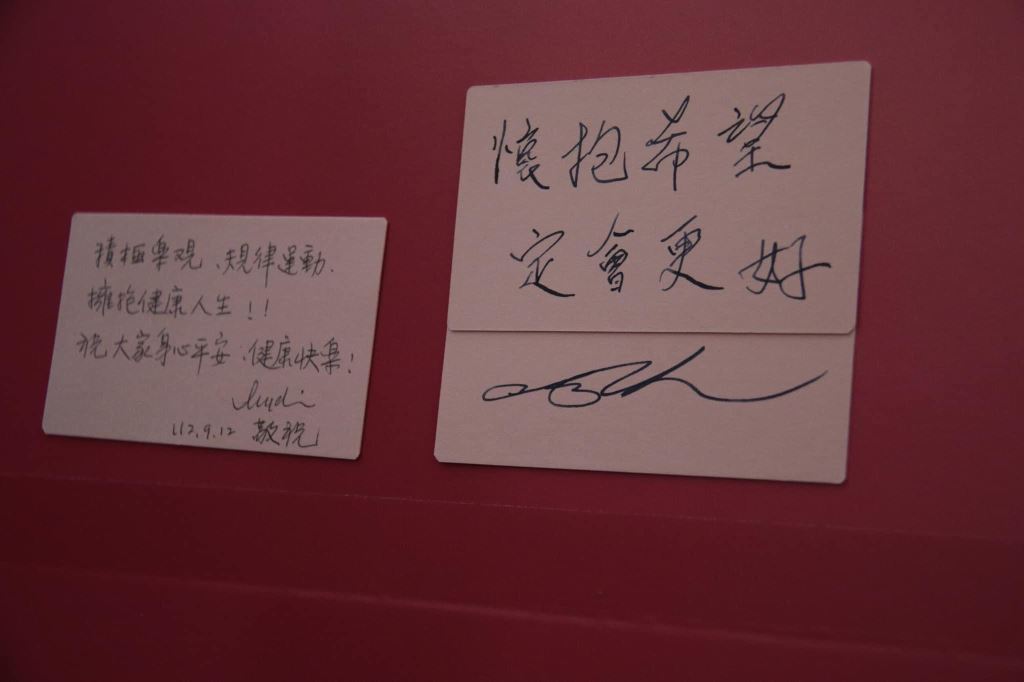 積極樂观、規律運動、
擁抱健康人生!!
祝大家身心平安、健康快樂!
112.9.12 敬祝
懷抱希望
定會更好